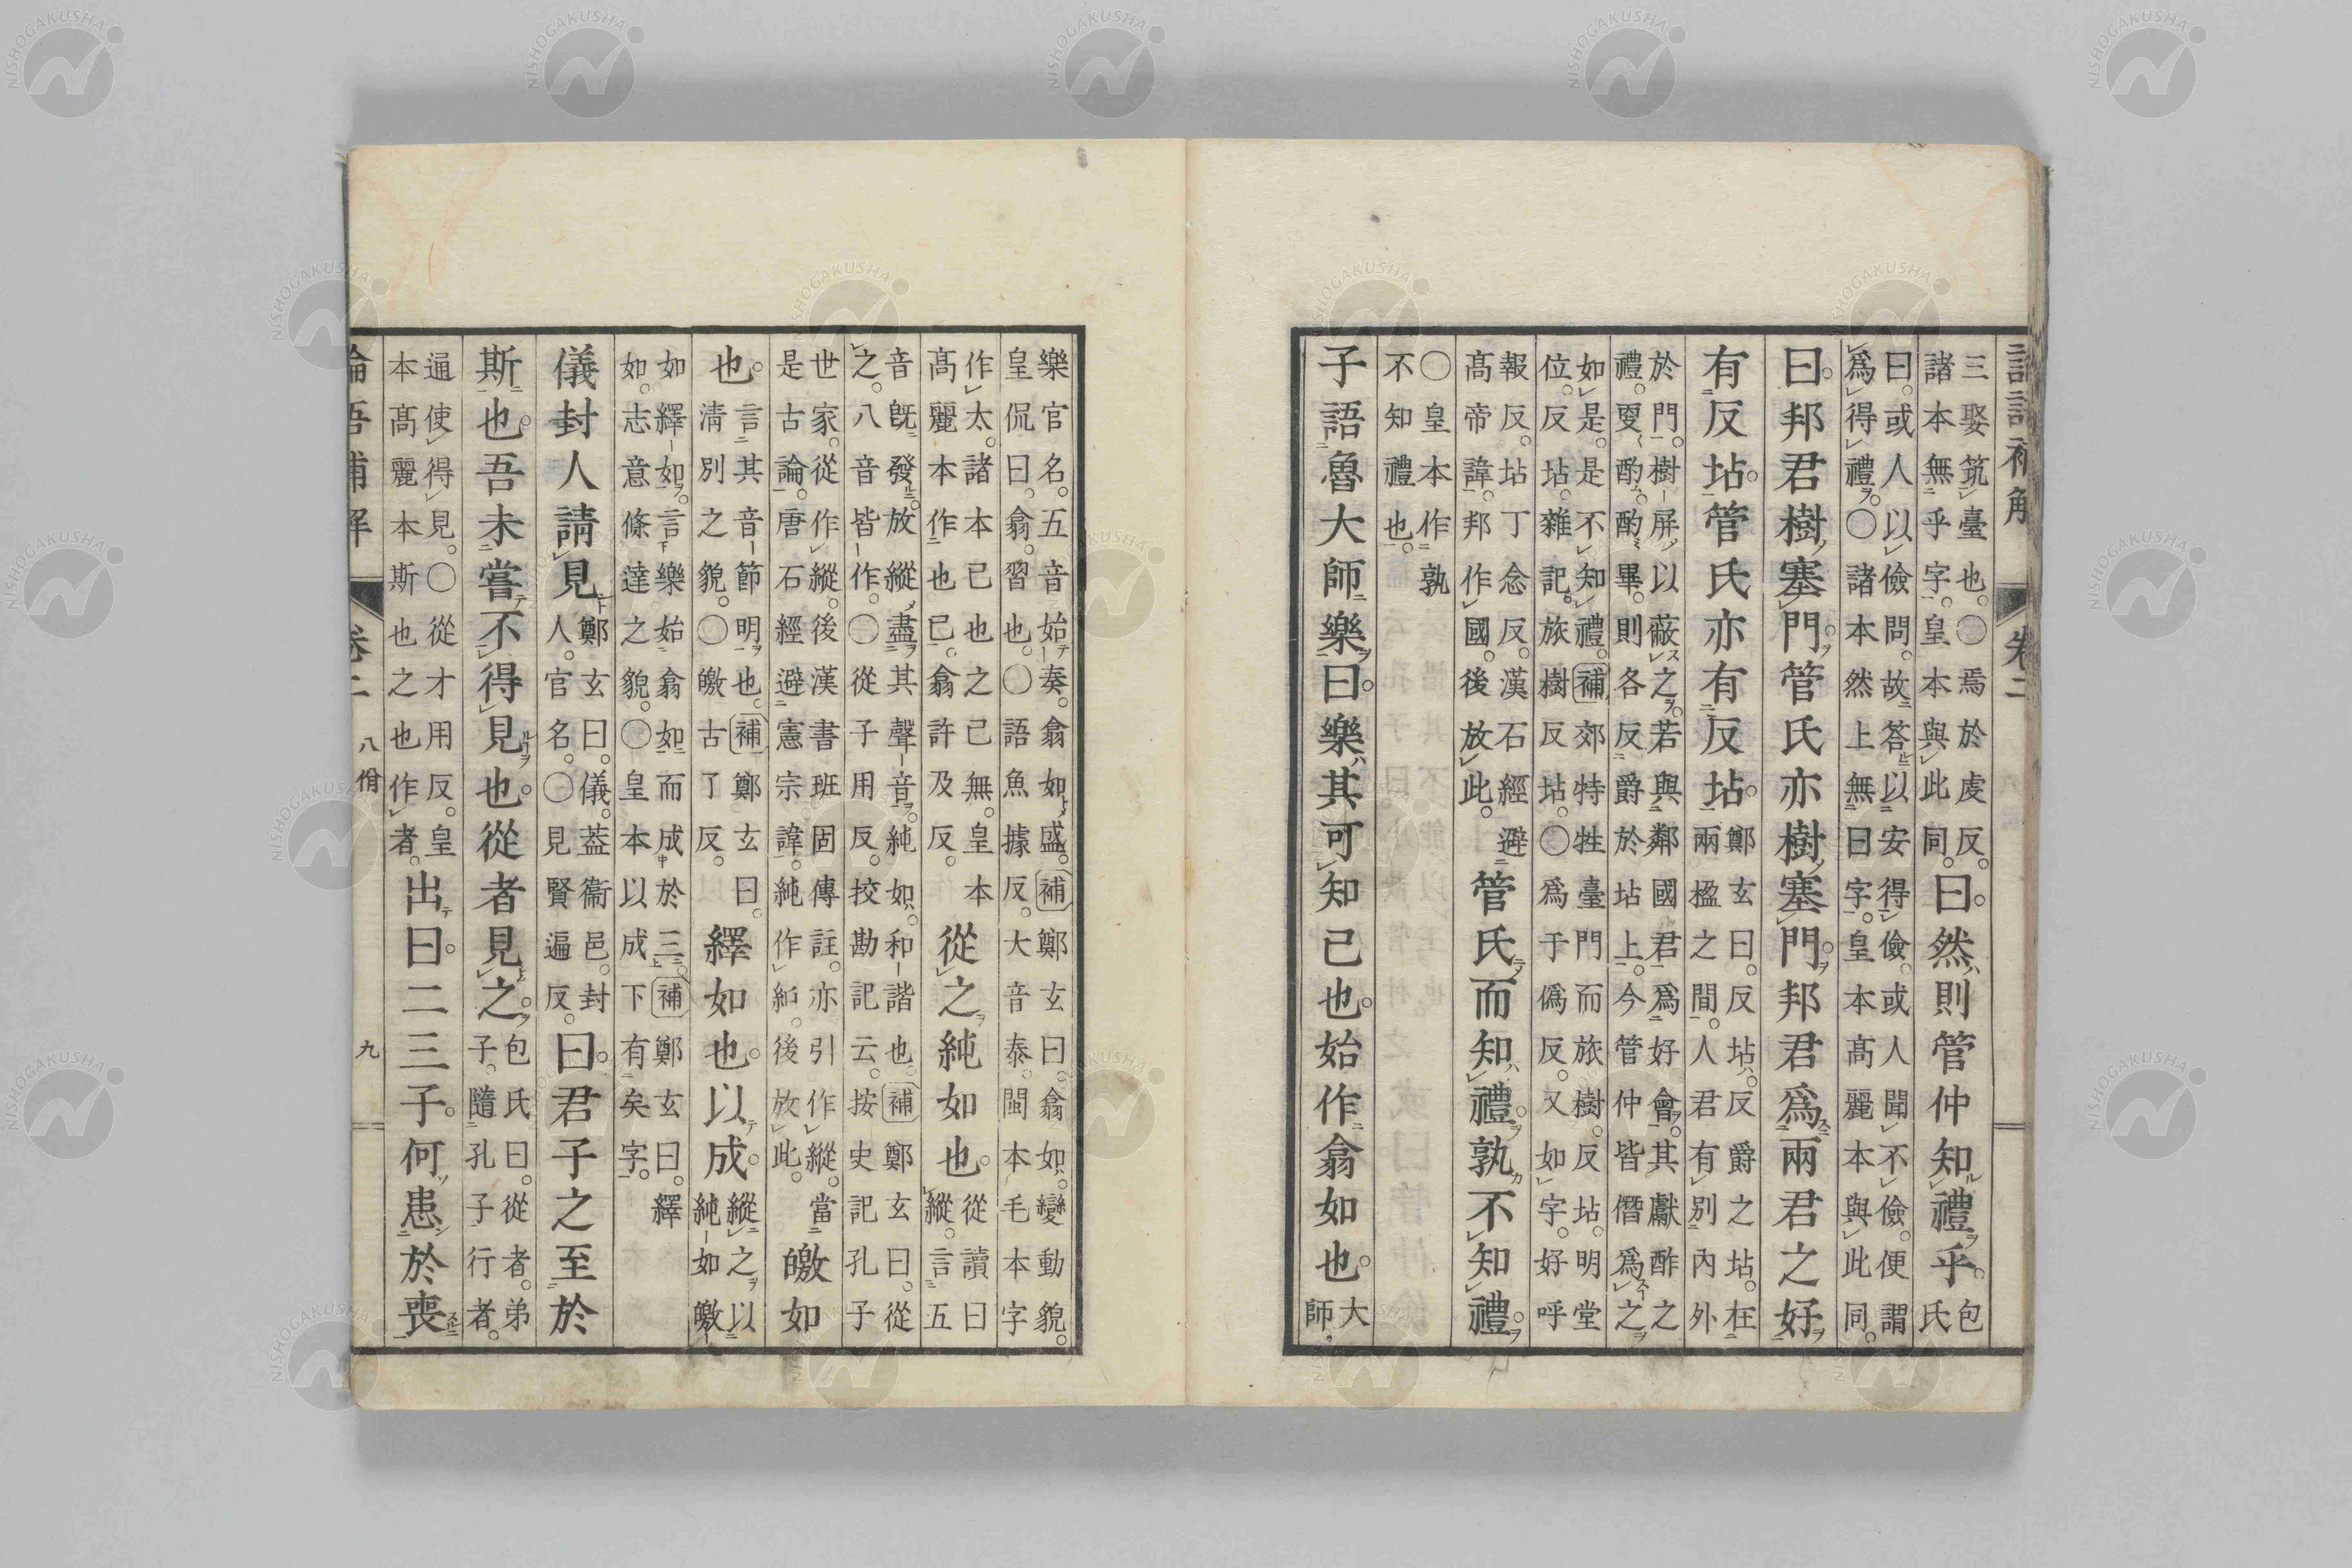 卷二
三娶筑臺也。〇焉於虔反。
諸本無乎字。皇本與此同。
曰。然則管仲知禮乎。
包
氏
曰。或人以儉問。故答以安得儉。或人聞不儉。便謂
爲得禮。〇諸本然上無曰字。皇本高麗本與此同。
曰。邦君樹塞門。管氏亦樹塞門。邦君爲兩君之好
有反坫。管氏亦有反坫。
鄭玄曰。反坫。反爵之坫。在
兩楹之間。人君有別內外
於門。樹屏以蔽之。若與鄰國君爲好會。其獻酢之
禮。更酌。酌畢。則各反爵於坫上。今管仲皆僭爲之
如是。是不知禮。補郊特牲臺門而旅樹。反坫。明堂
位。反坫。雜記。旅樹反坫。〇爲于僞反。又如字。好呼
報反。坫丁念反。漢石經避
高帝諱。邦作國。後放此。
管氏而知禮。孰不知禮。
〇皇本作孰
不知禮也。
子語魯大師樂曰。樂其可知已也。始作翕如也。
大
師
樂官名。五音始奏。翕如盛。補鄭玄曰。翕如。變動貌。
皇侃曰。翕。習也。〇語魚據反。大音泰。閩本毛本字
作太。諸本已也之已無。皇本
高麗本作也已。翕許及反。
從之純如也。
從讀曰
縱。言五
音既發。放縱盡其聲音。純如。和諧也。補鄭玄曰。從
之。八音皆作。〇從子用反。挍勘記云。按史記孔子
世家。從作縱。後漢書班固傳註。亦引作縱。當
是古論。唐石經避憲宗諱。純作紃。後放此。
皦如
也。
言其音節明也。補鄭玄曰。
清別之貌。〇皦古了反。
繹如也。以成。
縱之以
純如皦
如繹如。言樂始翕如而成於三。補鄭玄曰。繹
如。志意條達之貌。〇皇本以成下有矣字。
儀封人請見
鄭玄曰。儀。葢衞邑。封
人。官名。〇見賢遍反。
曰。君子之至於
斯也。吾未嘗不得見也。從者見之。
包氏曰。從者。弟
子。隨孔子行者。
通使得見。〇從才用反。皇
本高麗本斯也之也作者。
出曰。二三子。何患於喪
論吾補解
卷二
八佾
九